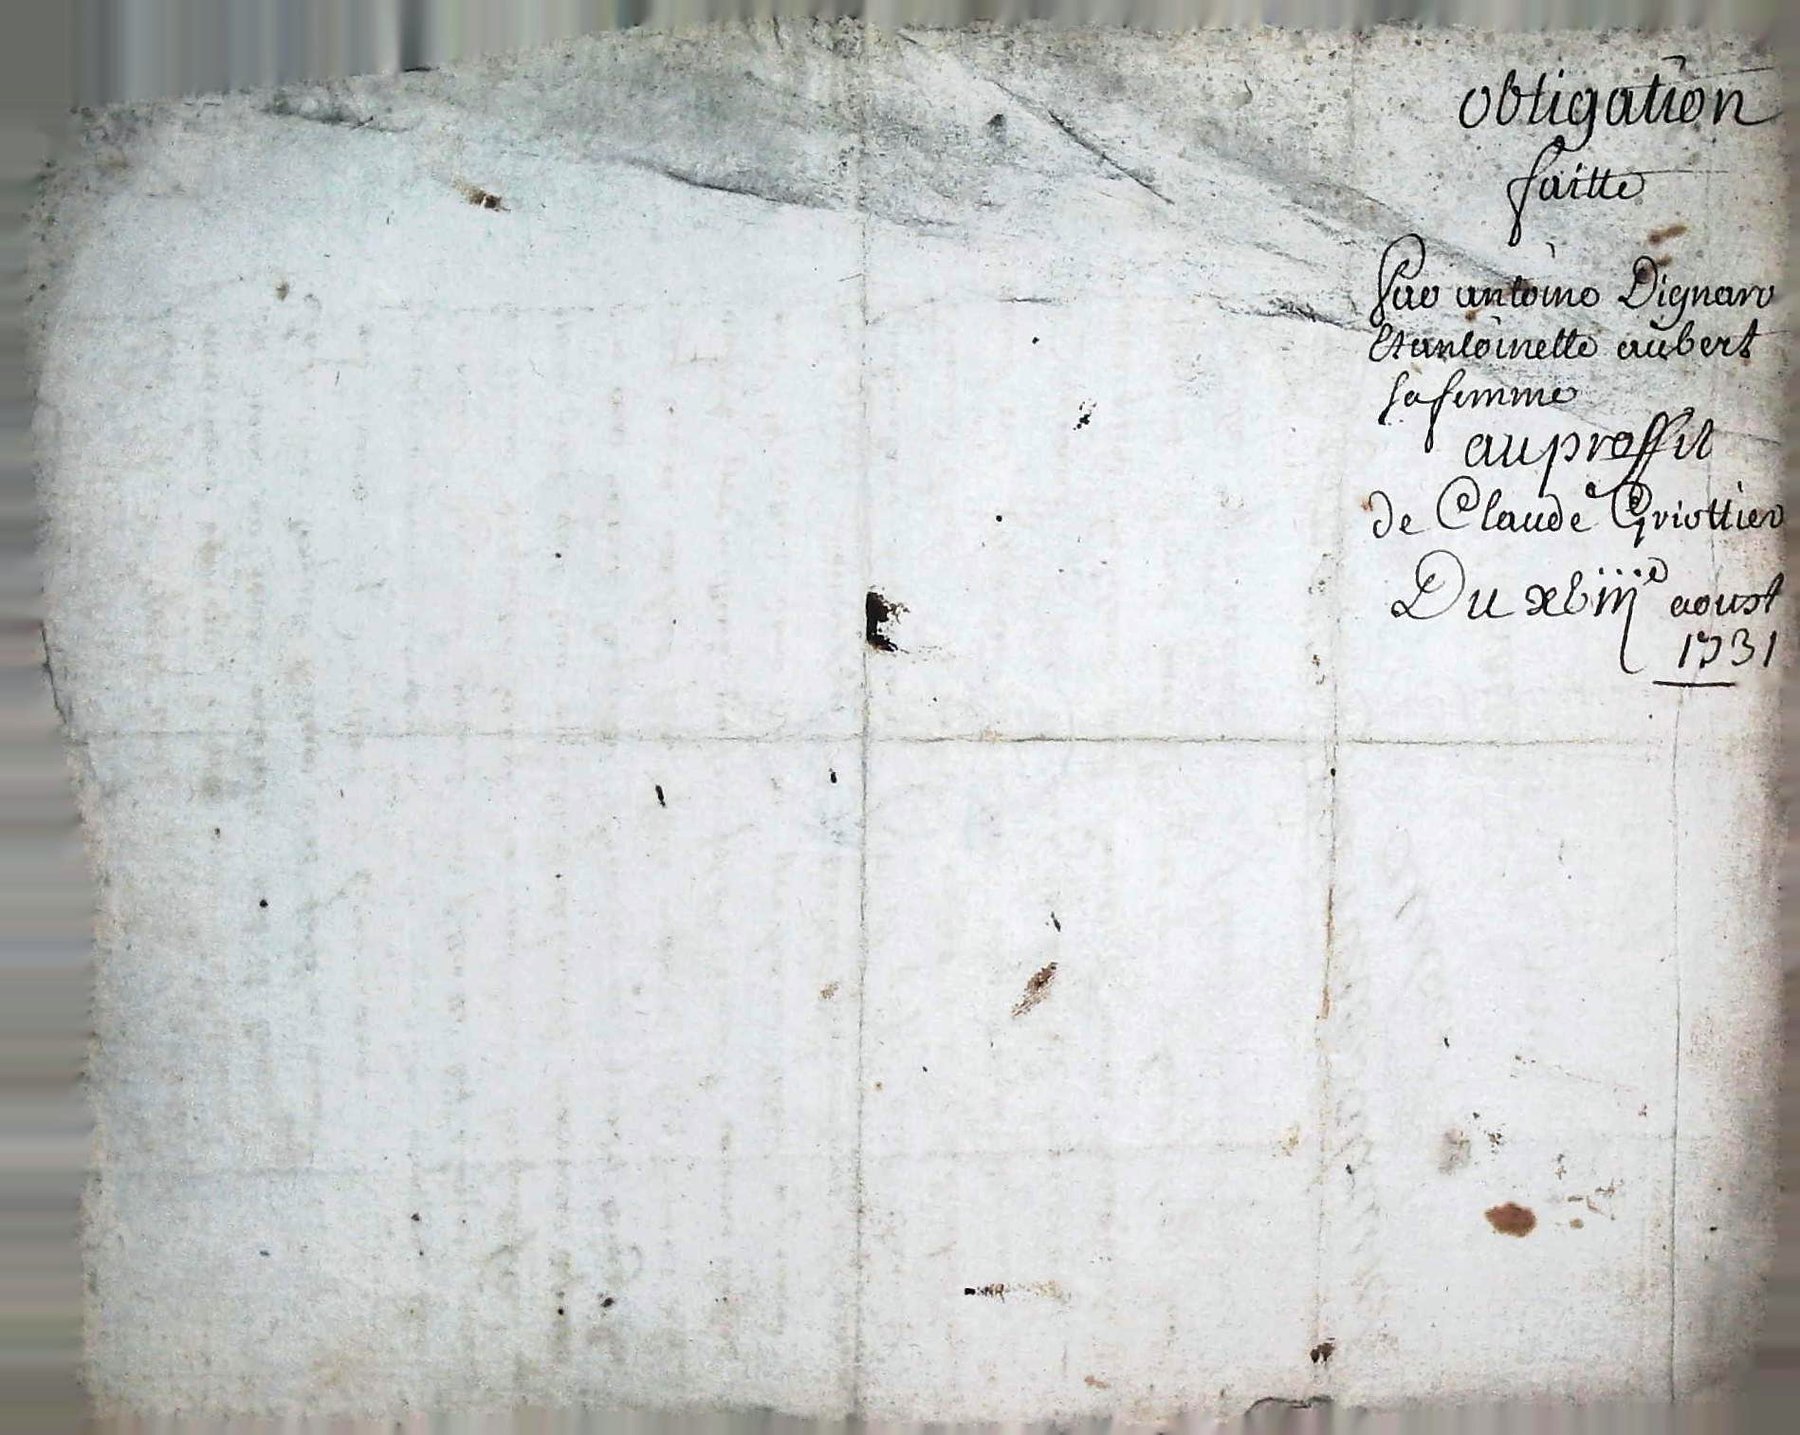 obligation
faitte
Par antoine Dignard
Et antoinette aubert
sa femme
au proffit
de Claude Griottier
Du xbiiie aoust
1731